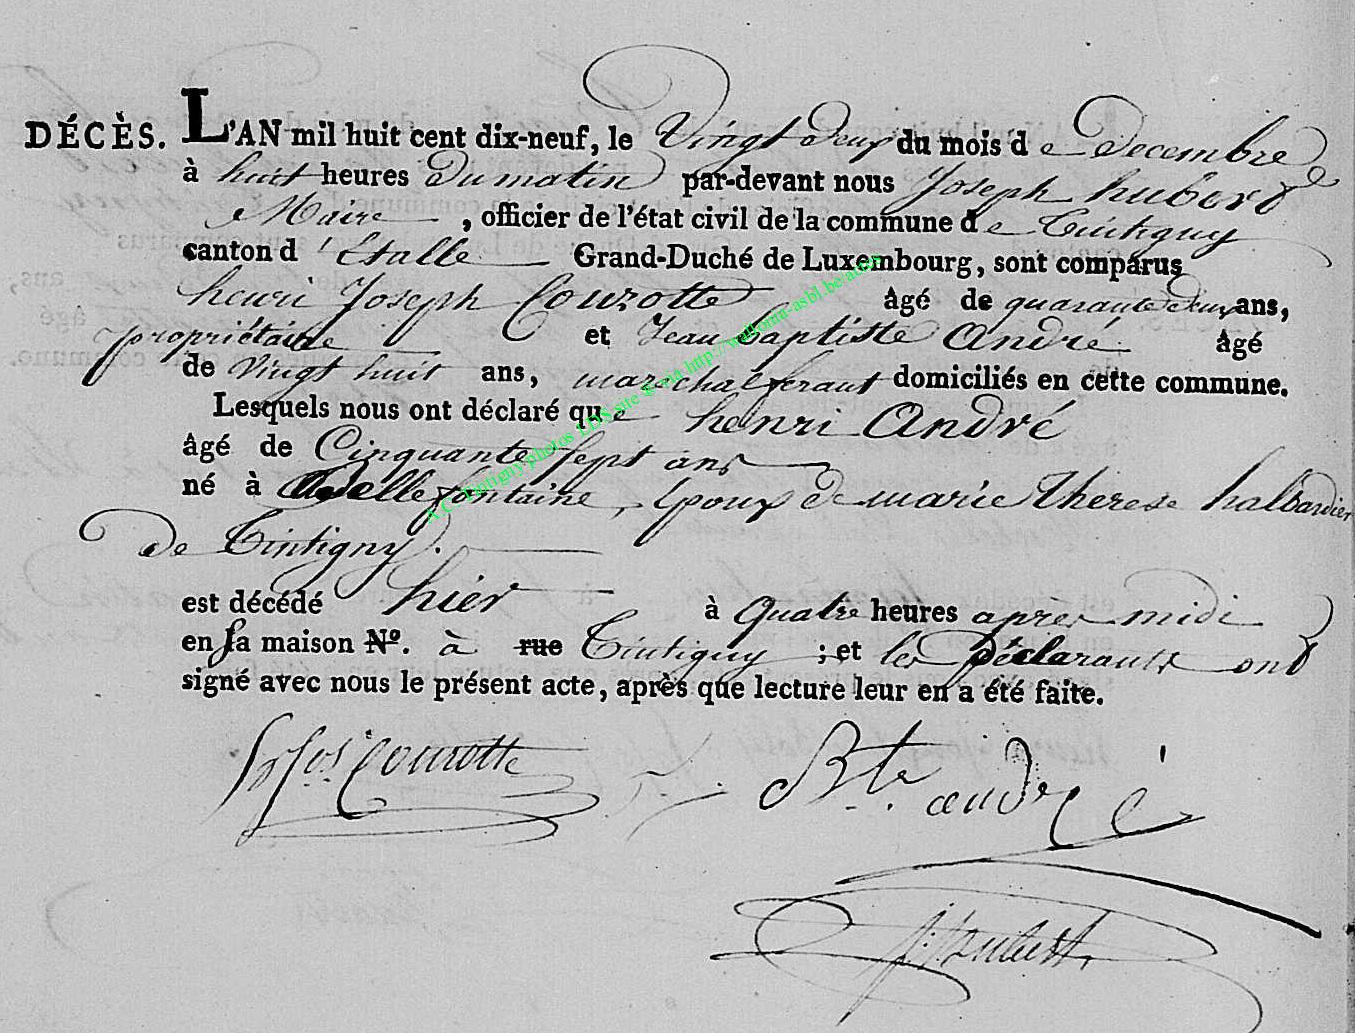 DÉCÈS. L'AN mil huit cent dix-neuf, le Vingt deux du mois de Decembre
à huit heures du matin par-devant nous Joseph hubert
Maire, officier de l'état civil de la commune de Tintigny
canton d'Etalle Grand-Duché de Luxembourg, sont comparus
henri Joseph Courotte âgé de quarante deux ans,
propriétaire et Jean baptiste André âgé
de Vingt huit ans, marechal feraut domiciliés en cette commune.
Lesquels nous ont déclaré que henri André
âgé de Cinquante sept ans
né à Bellefontaine, Epoux de marie therese halbardier
de Tintigny.
est décédé hier à quatre heures après midi
en sa maison N°. à rue Tintigny ; et les Déclarants ont
signé avec nous le présent acte, après que lecture leur en a été faite.
Hjos Courotte Bte. andré
J: hubert
A.C. Tintigny photos LDS site & via http://wallonia-asbl.be/actes